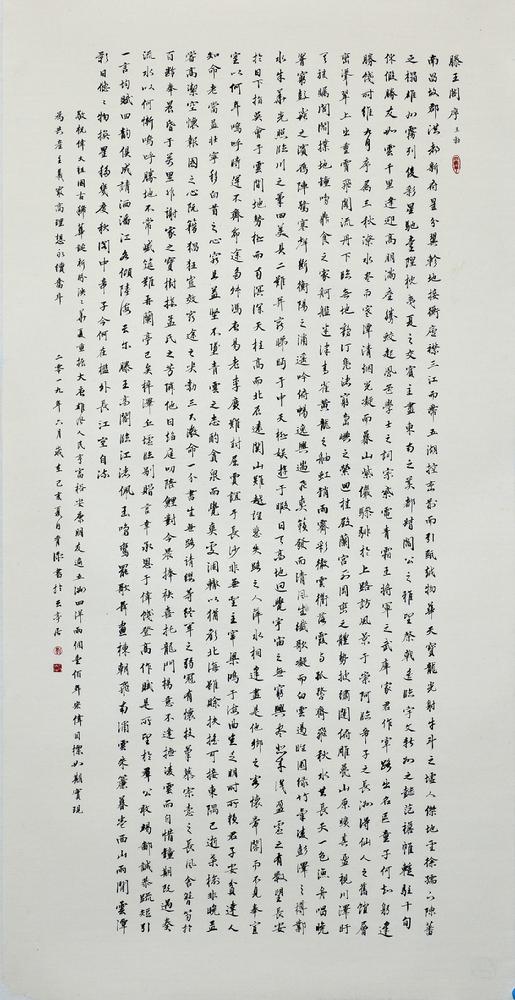 滕王閣序 王勃
南昌故郡洪都新府星分翼軫地接衡廬襟三江而帶五湖控蠻荊而引甌越物華天寶龍光射牛斗之墟人傑地靈徐孺下陳蕃
之榻雄州霧列俊彩星馳臺隍枕夷夏之交賓主盡東南之美都督閻公之雅望棨戟遙臨宇文新州之懿範襜帷暫駐十旬
休假勝友如雲千里逢迎高朋滿座騰蛟起鳳孟學士之詞宗紫電青霜王將軍之武庫家君作宰路出名區童子何知躬逢
勝餞時維九月序屬三秋潦水盡而寒潭清煙光凝而暮山紫儼驂騑於上路訪風景于崇阿臨帝子之長洲得仙人之舊館層
巒聳翠上出重霄飛閣流丹下臨無地鶴汀鳧渚窮島嶼之縈迴桂殿蘭宮即岡巒之體勢披繡闥俯雕甍山原曠其盈視川澤盱
其駭矚閭閻撲地鐘鳴鼎食之家舸艦迷津青雀黃龍之舳虹銷雨霽彩徹雲衢落霞与孤鶩齊飛秋水共長天一色漁舟唱晚
響窮彭蠡之濱雁陣驚寒聲斷衡陽之浦遙吟俯暢逸興遄飛爽籟發而清風生纖歌凝而白雲遏睢園綠竹氣凌彭澤之樽鄴
水朱華光照臨川之筆四美具二難并窮睇眄于中天極娛遊于暇日天高地迥覺宇宙之無窮興盡悲來識盈虛之有數望長安
於日下指吳會于雲間地勢極而南溟深天柱高而北辰遠關山難越誰悲失路之人萍水相逢盡是他鄉之客懷帝閽而不見奉宣
室以何年嗚呼時運不齊命途多舛馮唐易老李廣難封屈賈誼于長沙非無聖主竄梁鴻于海曲豈乏明時所賴君子安貧達人
知命老當益壯寧移白首之心窮且益堅不墜青雲之志酌貪泉而覺爽處涸轍以猶歡北海雖賒扶搖可接東隅已逝桑榆非晚孟
嘗高潔空懷報國之心阮籍猖狂豈效窮途之哭勃三尺微命一介書生無路請纓等終軍之弱冠有懷投筆慕宗愨之長風舍簪笏於
百齡奉晨昏于萬里非謝家之寶樹接孟氏之芳鄰他日趨庭叨陪鯉對今晨捧袂喜托龍門楊意不逢撫凌雲而自惜鐘期既遇奏
流水以何慚嗚呼勝地不常盛筵難再蘭亭已矣梓澤丘墟臨別贈言幸承恩于偉餞登高作賦是所望於群公敢竭鄙誠恭疏短引
一言均賦四韻俱成請灑潘江各傾陸海云爾滕王高閣臨江渚佩玉鳴鸞罷歌舞畫棟朝飛南浦雲朱簾暮卷西山雨閑雲潭
影日悠悠物換星移幾度秋閣中帝子今何在檻外長江空自流
敬祝偉大祖國古稀華誕華夏重振大唐雄風人民幸富裕安康朋友遍五洲四洋兩個壹佰年宏偉目標如期實現
為共產主義崇高理想永續奮斗
二零一九年六月歲在己亥夏月書於